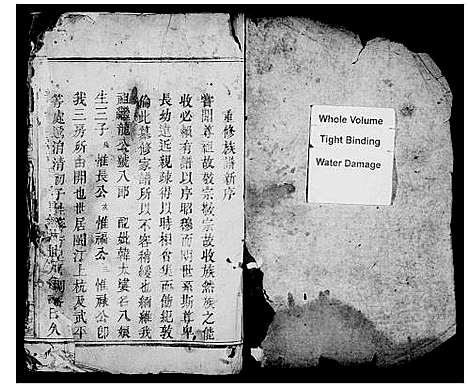 重修族譜新序
嘗聞尊祖故敬宗敬宗故收族然族之能
收必賴有譜以序昭穆而明世系斯尊卑
長幼遠近親疎得以時相省集而倫紀敦
倫此纂修家譜所以不容稍緩也緬維我
祖繼龍公號八郎 配妣韓太孺名八娘
生三子 惟長公 惟福公 惟祿公即
我三房所由開也世居閩汀上杭及武平
等處迨治清初子
Whole Volume
Tight Binding
Water Damage